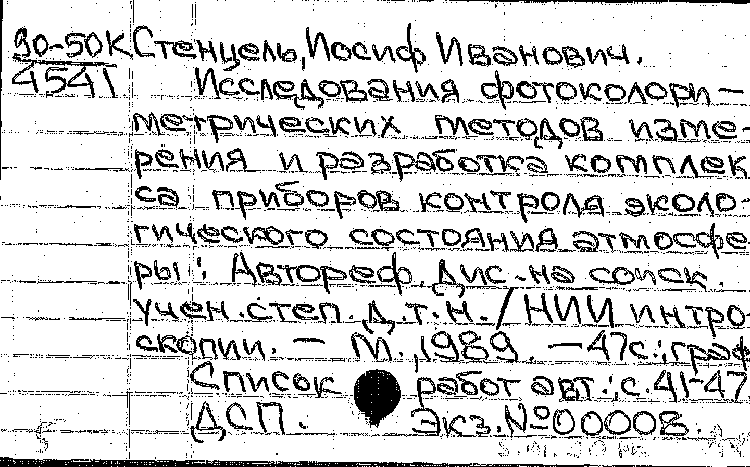 90-50К Стенцель, Иосиф Иванович.
4541 Исследования фотоколори-
метрических методов изме-
рения и разработка комплек
са приборов контроля эколо-
гического состояния атмосфе
ры: Автореф. дис. на соиск.
учен. степ. д.т.н. / НИИ интро-
скопии. - М., 1989. - 47с.: граф
Список работ авт.: с. 41-47
ДСП. Экз. №00008.